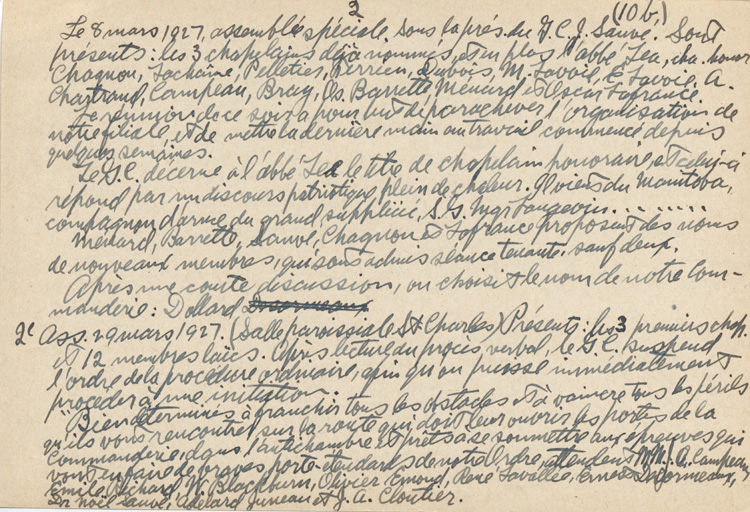 3
(10 b)
Le 8 mars 1927, assemblée spéciale. Sous la prés. du G.C. J. Sauvé. Sont
présents: les 3 chapelains déjà nommés, et en plus l'abbé Lea, cha. honor
Chagnon, Lachaine, Pelletier, Perrien, Dubois, M. Lavoie, E. Lavoie, A.
Chartrand, Campeau, Bray, Os. Barrette, Ménard et Oscar Lafrance.
La réunion de ce soir a pour but de parachever l'organisation de
notre filiale et de mettre la dernière main au travail commencé depuis
quelques semaines.
Le G.C. décerne à l'abbé Lea le titre de chapelain honoraire et celui-ci
répond par un discours patriotique plein de chaleur. Il vient du Manitoba,
compagnon d'arme du grand supplicié, S.G. Mgr Langevin.........
Ménard, Barrette, Sauvé, Chagnon et Lafrance proposent des noms
de nouveaux membres, qui sont admis séance tenante, sauf deux.
Après une courte discussion, on choisit le nom de notre Com-
manderie: Dollard Desormeaux
2e Ass. 29 mars 1927. (Salle paroissiale St Charles) Présents: les 3 premiers chap.
et 12 membres laïcs. Après lecture du procès verbal, le G.C. suspend
l'ordre de la procédure ordinaire, afin qu'on puisse immédiatement
procéder à une initiation.
"Bien déterminés à franchir tous les obstacles et à vaincre tous les périls
qu'ils vont rencontrer sur la route qui doit leur ouvrir les portes de la
Commanderie, dans l'antichambre et prêts à se soumettre aux épreuves qui
vont en faire de braves porte-étendards de notre Ordre, attendent MM. A. Campeau,
Emile Richard, W. Blackburn, Olivier Emond, René Lavallée, Ernest Desormeaux,
Dr Noël Sauvé, Adélard Juneau et J. A. Cloutier.